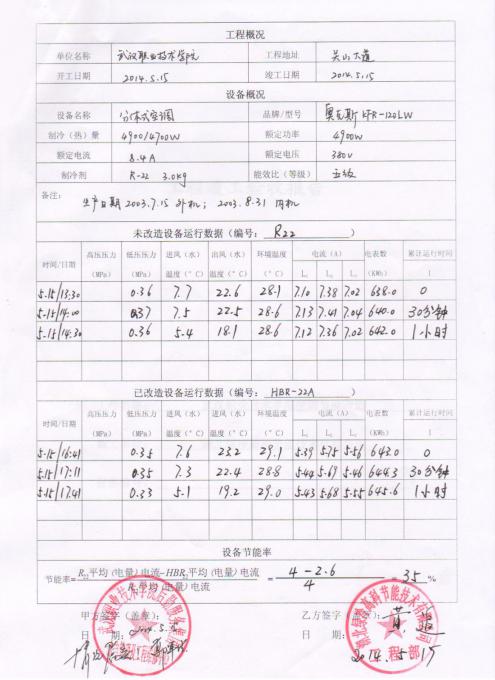 工程概况
单位名称 武汉职业技术学院 工程地址 关山大道
开工日期 2014.5.15 竣工日期 2014.5.15
设备概况
设备名称 分体式空调 品牌/型号 奥克斯 KFR-120LW
制冷(热)量 4900/4700W 额定功率 4900W
额定电流 8.4A 额定电压 380V
制冷剂 R-22 3.0kg 能效比(等级) 五级
备注:
生产日期 2003.7.15 外机; 2003.8.31 内机
未改造设备运行数据(编号: R22 )
时间/日期 高压压力 (MPa) 低压压力 (MPa) 进风(水)温度(°C) 出风(水)温度(°C) 环境温度(°C) 电流(A) L L L 电表数(KWh) 累计运行时间
5.15/13:30 0.36 7.7 22.6 28.1 7.10 7.38 7.02 638.0 0
5.15/14:00 0.37 7.5 22.5 28.6 7.13 7.41 7.04 640.0 30分钟
5.15/14:30 0.36 5.4 18.1 28.6 7.12 7.36 7.02 642.0 1小时
已改造设备运行数据(编号: HBR-22A )
时间/日期 高压压力 (MPa) 低压压力 (MPa) 进风(水)温度(°C) 进风(水)温度(°C) 环境温度(°C) 电流(A) L L L 电表数(KWh) 累计运行时间
5.15/16:41 0.35 7.6 23.2 29.1 5.39 5.75 5.56 643.0 0
5.15/17:11 0.35 7.3 22.4 28.8 5.44 5.69 5.46 644.3 30分钟
5.15/17:41 0.33 5.1 19.2 29.0 5.43 5.68 5.55 645.6 1小时
设备节能率
节能率= R22平均(电量)电流-HBR平均(电量)电流 / R平均(电量)电流 = 4-2.6 / 4 = 35 %
甲方签字(盖章): 乙方签字
日 期: 2014.5.15 日 期:
2014.5.15